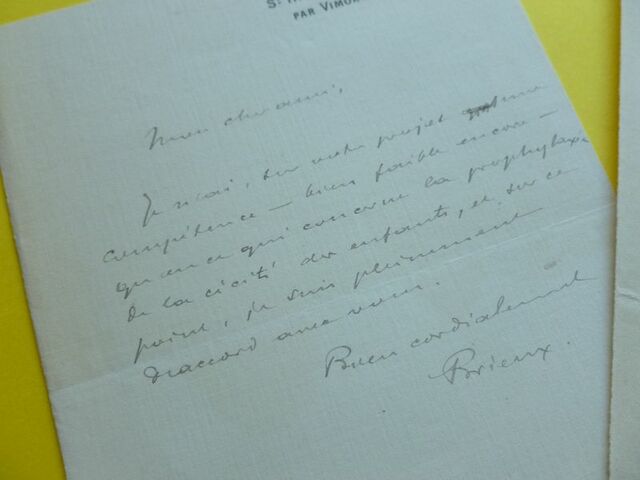 Mon cher ami,
Je n'ai, sur votre projet, une
compétence — bien faible encore —
qu'en ce qui concerne la prophylaxie
de la cécité des enfants, et, sur ce
point, je suis pleinement
d'accord avec vous.
Bien cordialement
Brieux.
PAR VIMOU